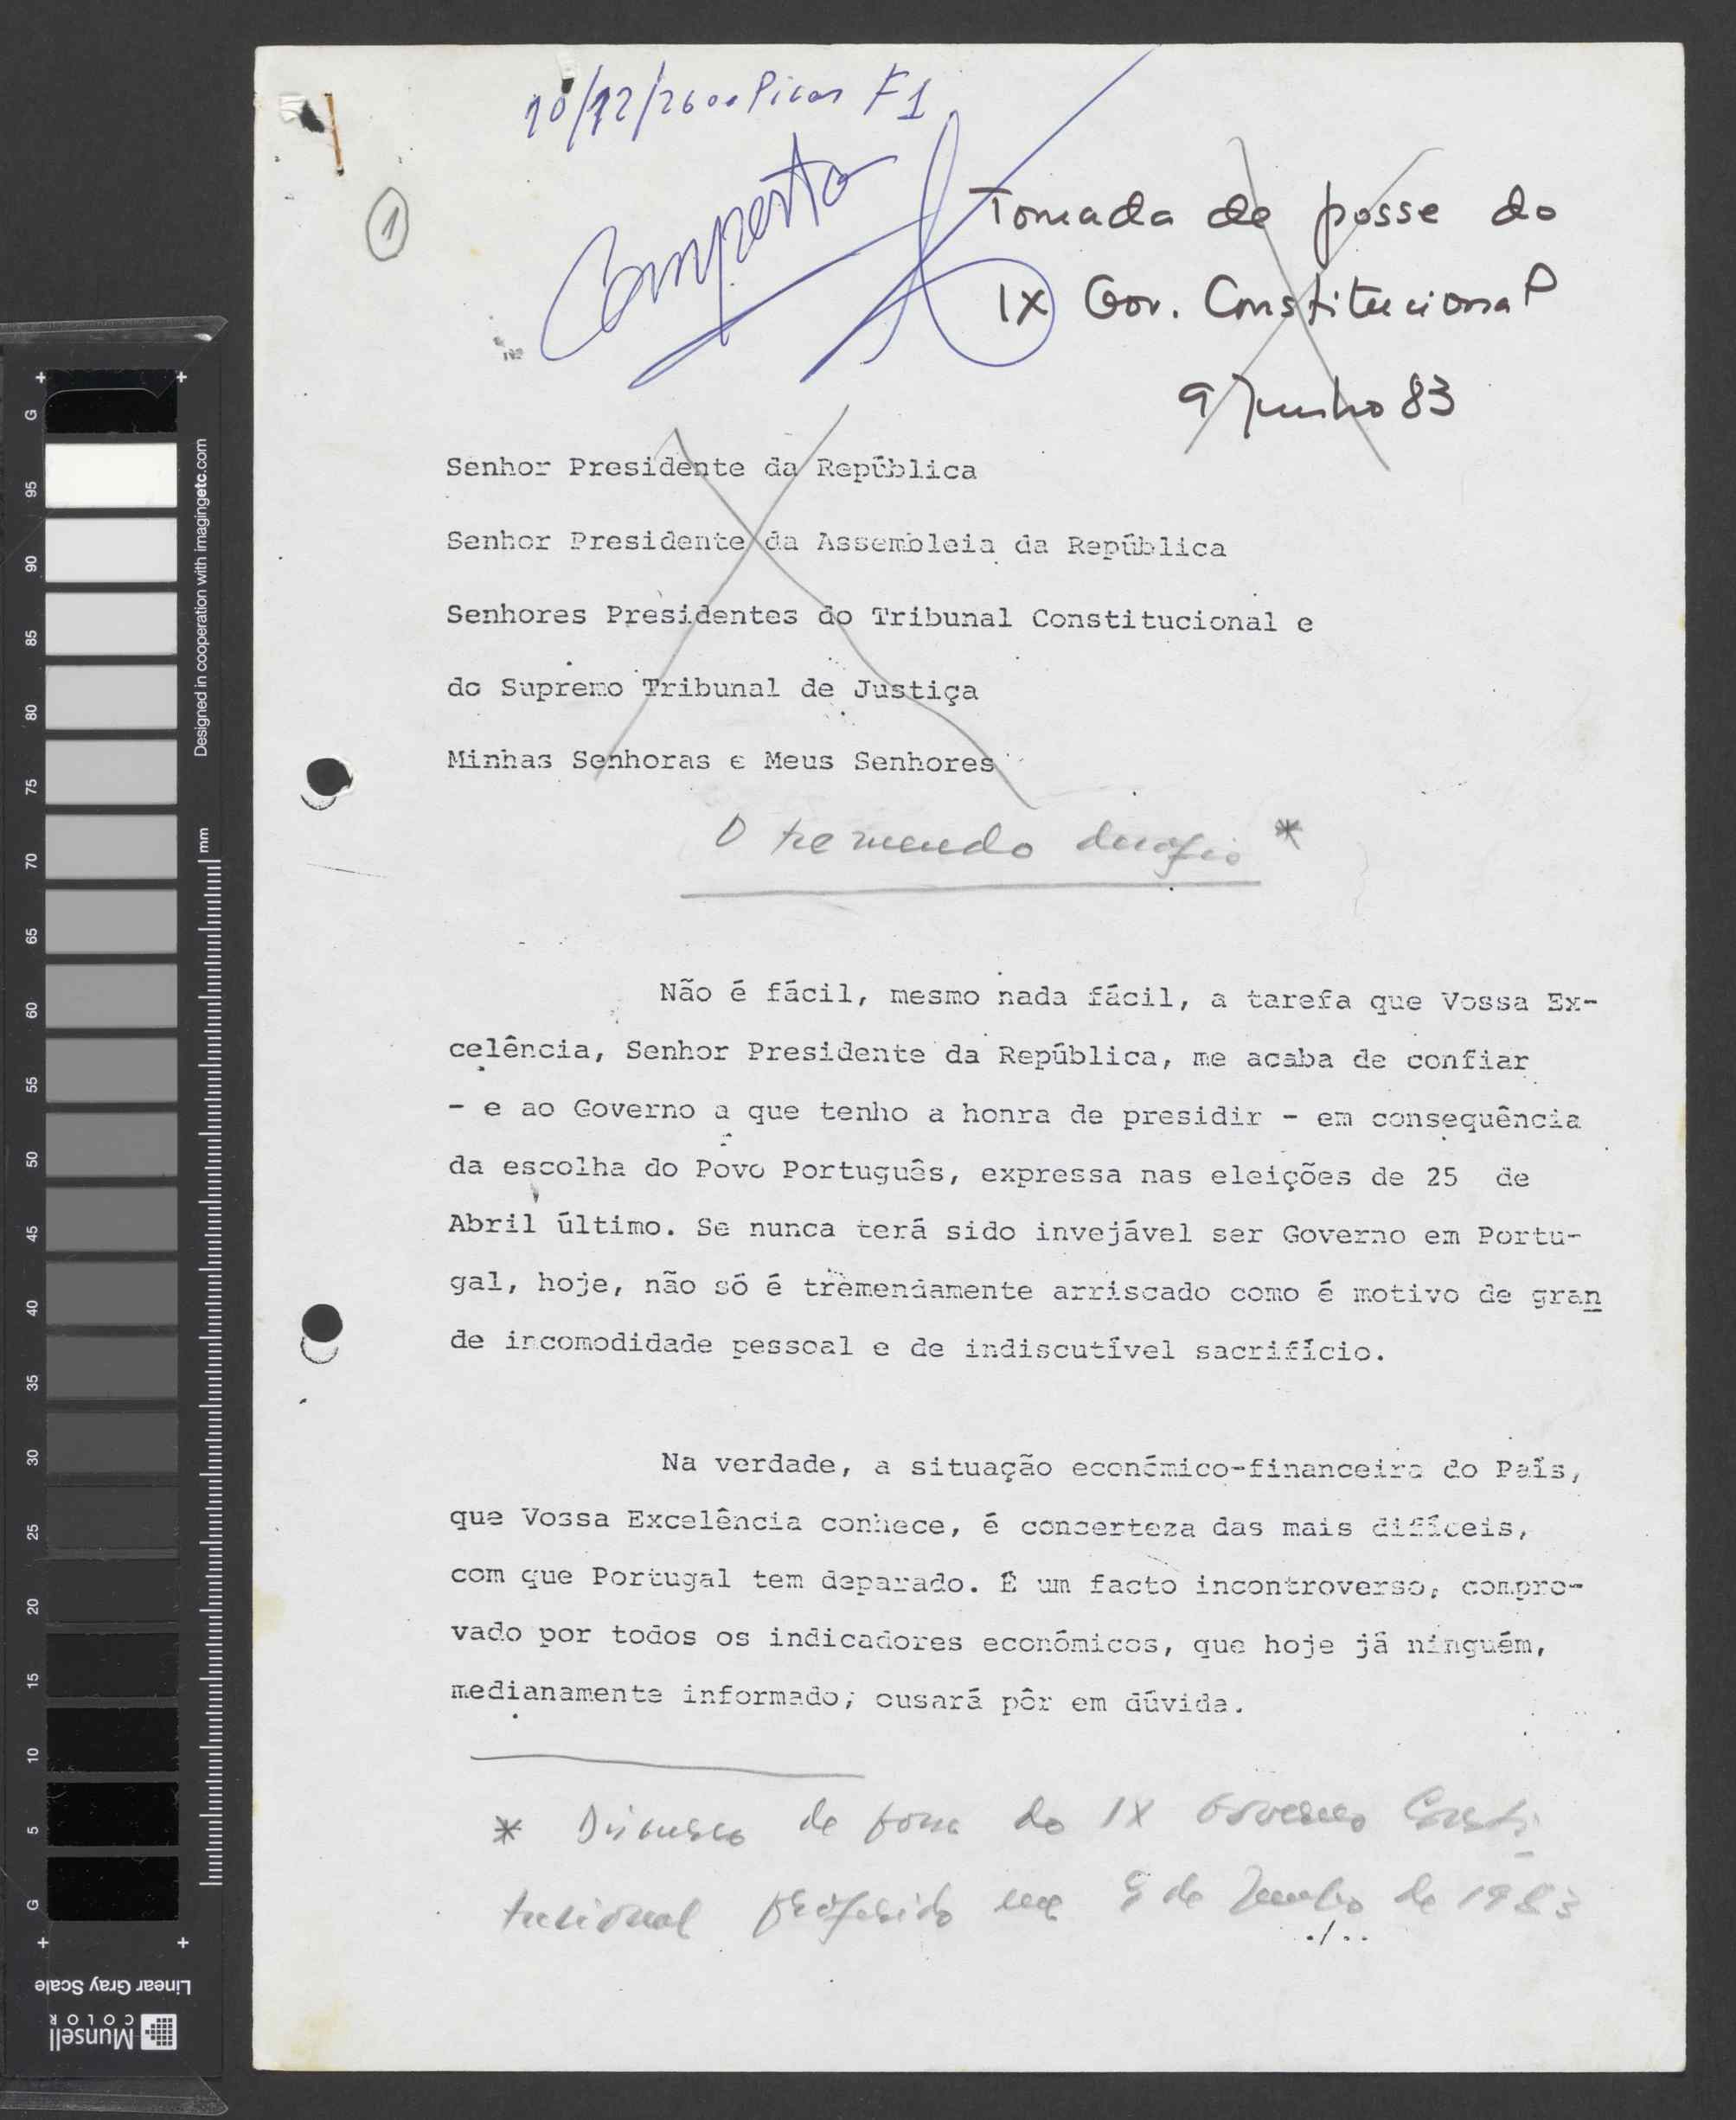 10/12/26 oo Picas F1
Composto
1
Tomada de posse do
IX Gov. Constitucional
9 Junho 83
Senhor Presidente da República
Senhor Presidente da Assembleia da República
Senhores Presidentes do Tribunal Constitucional e
do Supremo Tribunal de Justiça
Minhas Senhoras e Meus Senhores
O tremendo desafio *
Não é fácil, mesmo nada fácil, a tarefa que Vossa Ex-
celência, Senhor Presidente da República, me acaba de confiar
- e ao Governo a que tenho a honra de presidir - em consequência
da escolha do Povo Português, expressa nas eleições de 25 de
Abril último. Se nunca terá sido invejável ser Governo em Portu-
gal, hoje, não só é tremendamente arriscado como é motivo de gran
de incomodidade pessoal e de indiscutível sacrifício.
Na verdade, a situação económico-financeira do País,
que Vossa Excelência conhece, é concerteza das mais difíceis,
com que Portugal tem deparado. É um facto incontroverso, compro-
vado por todos os indicadores económicos, que hoje já ninguém,
medianamente informado, ousará pôr em dúvida.
* Discurso de posse do IX Governo Consti-
tucional proferido em 9 de Junho de 1983
./..
G 95 90 85 80 75 70 65 60 55 50 45 40 35 30 25 20 15 10 5 G
Designed in cooperation with imagingetc.com
mm
Linear Gray Scale
Munsell
COLOR